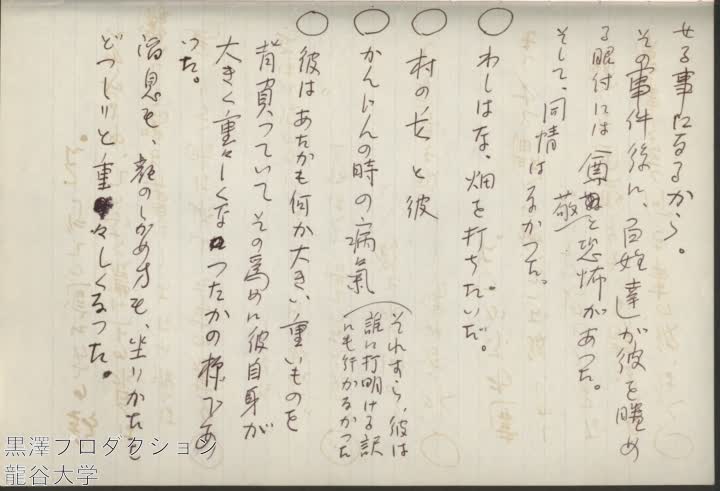 せる事になるから。
その事件後に、百姓達が彼を眺め
る眼付には尊敬と恐怖があった。
そして、同情はなかつた。
○ わしはな、畑を打ちたいだ。
○ 村の女と彼
○ かんじんの時の病氣（それすら、彼は
誰に打明ける訳
にも行かなかつた
○ 彼はあたかも何か大きい、重いものを
背負つていてその為めに彼自身が
大きく重々しくなつたかの様であ
つた。
溜息も、顔のしかめ方も、坐りかたも
どつしりと重々しくなつた。
黒澤プロダクション
龍谷大学